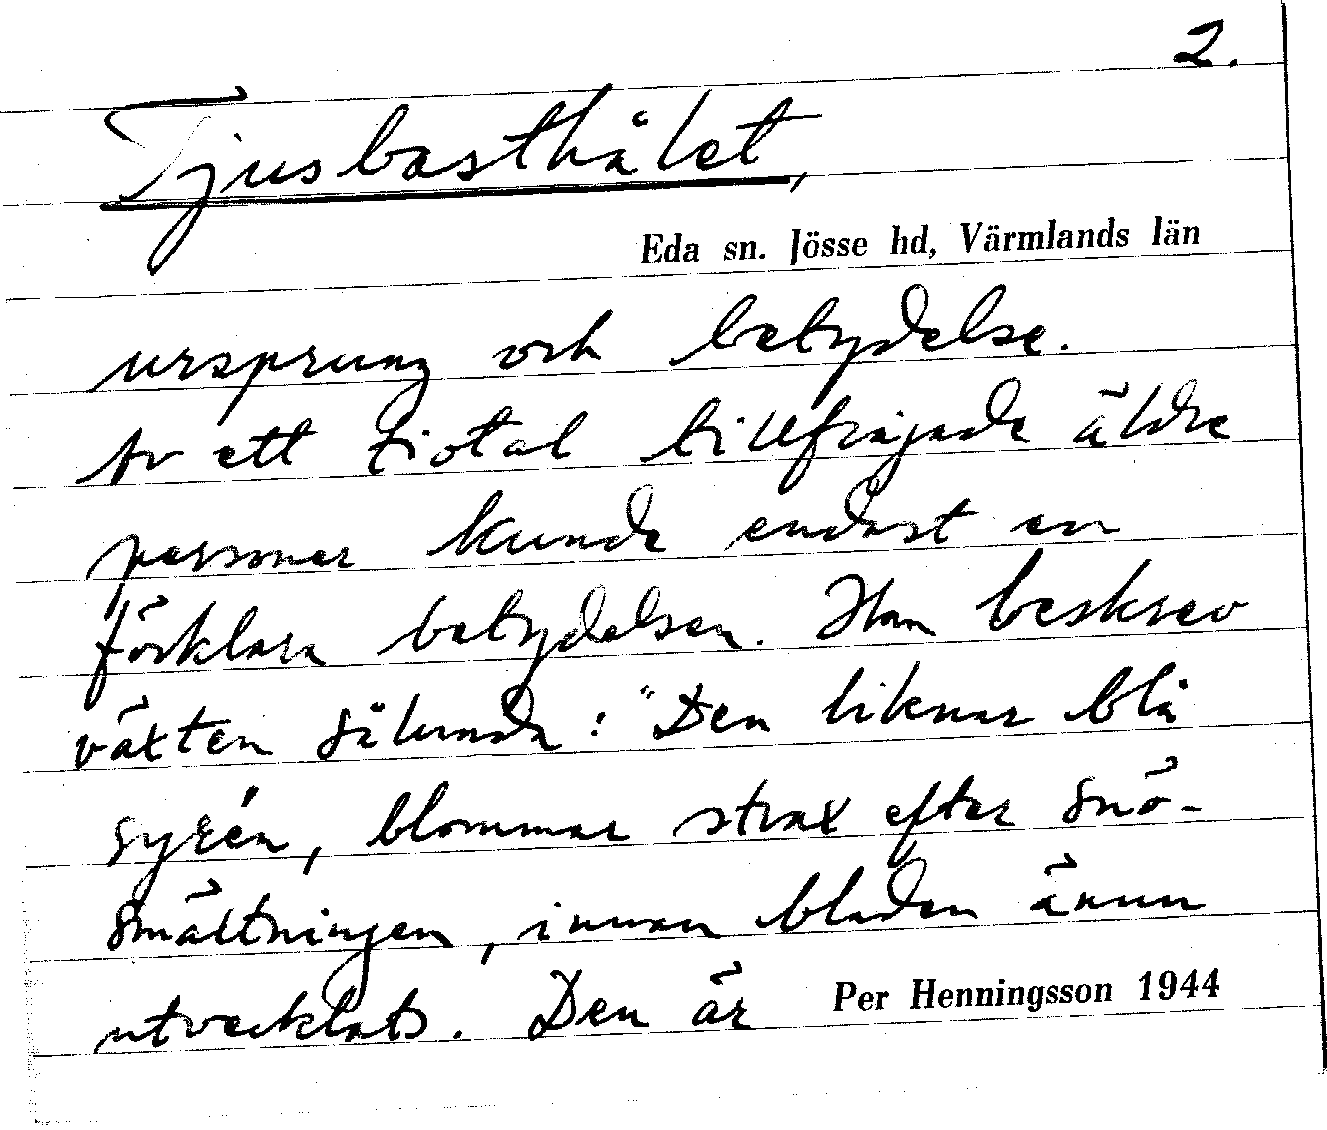 2.
Tjusbasthålet,
Eda sn. Jösse hd, Värmlands län
ursprung och betydelse.
Av ett tiotal tillfrågade äldre
personer kunde endast en
förklara betydelsen. Han beskrev
växten sålunda: "Den liknar blå
syrén, blommar strax efter snö-
smältningen, innan bladen ännu
utvecklats. Den är
Per Henningsson 1944